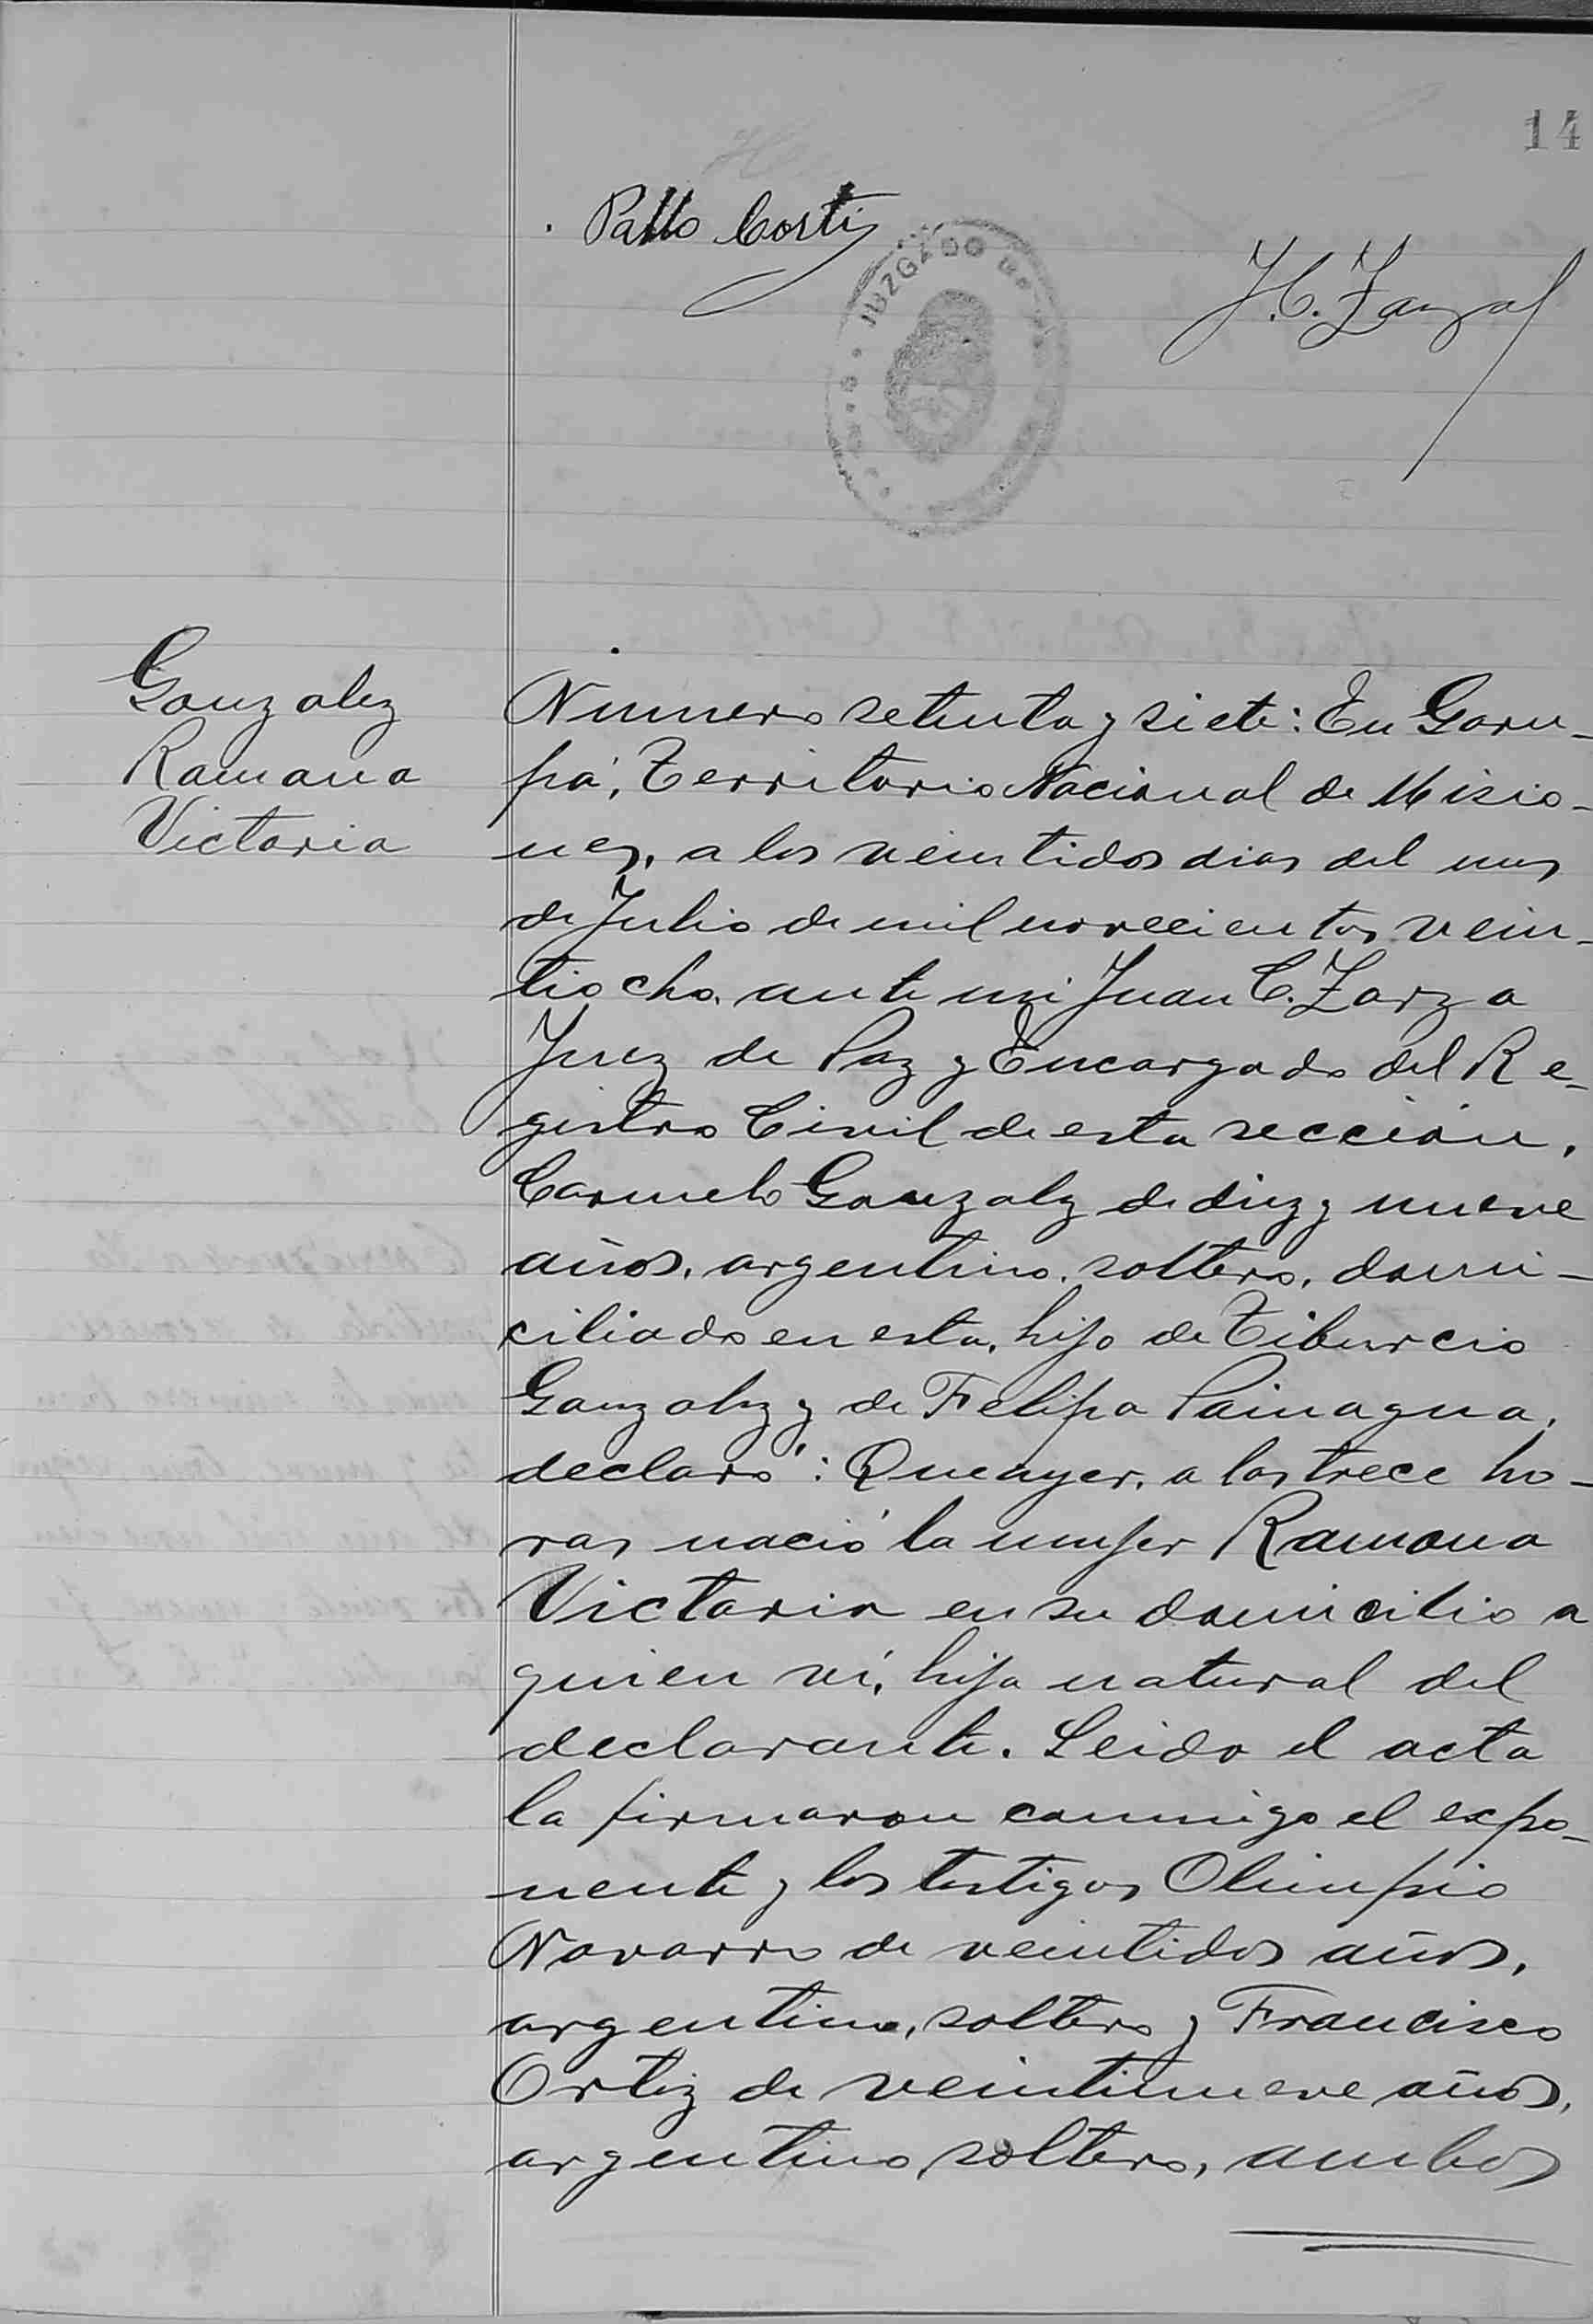 14
Pablo Cortiz
JUZGADO
J. C. Zarza
Gonzalez
Ramona
Victoria
Numero setenta y siete: En Garu-
pá, Territorio Nacional de Misio-
nes, a los veintidos dias del mes
de Julio de mil novecientos vein-
tiocho, ante mi Juan C. Zarza
Juez de Paz y Encargado del Re-
gistro Civil de esta sección,
Carmelo Gonzalez de diez y nueve
años, argentino, soltero, domi-
ciliado en esta, hijo de Tiburcio
Gonzalez y de Felipa Painagua,
declaró: Que ayer, a las trece ho-
ras nació la mujer Ramona
Victoria en su domicilio a
quien ví, hija natural del
declarante. Leido el acta
la firmaron conmigo el expo-
nente y los testigos Olimpio
Navarro de veintidos años,
argentino, soltero y Francisco
Ortiz de veintinueve años,
argentino, soltero, ambos